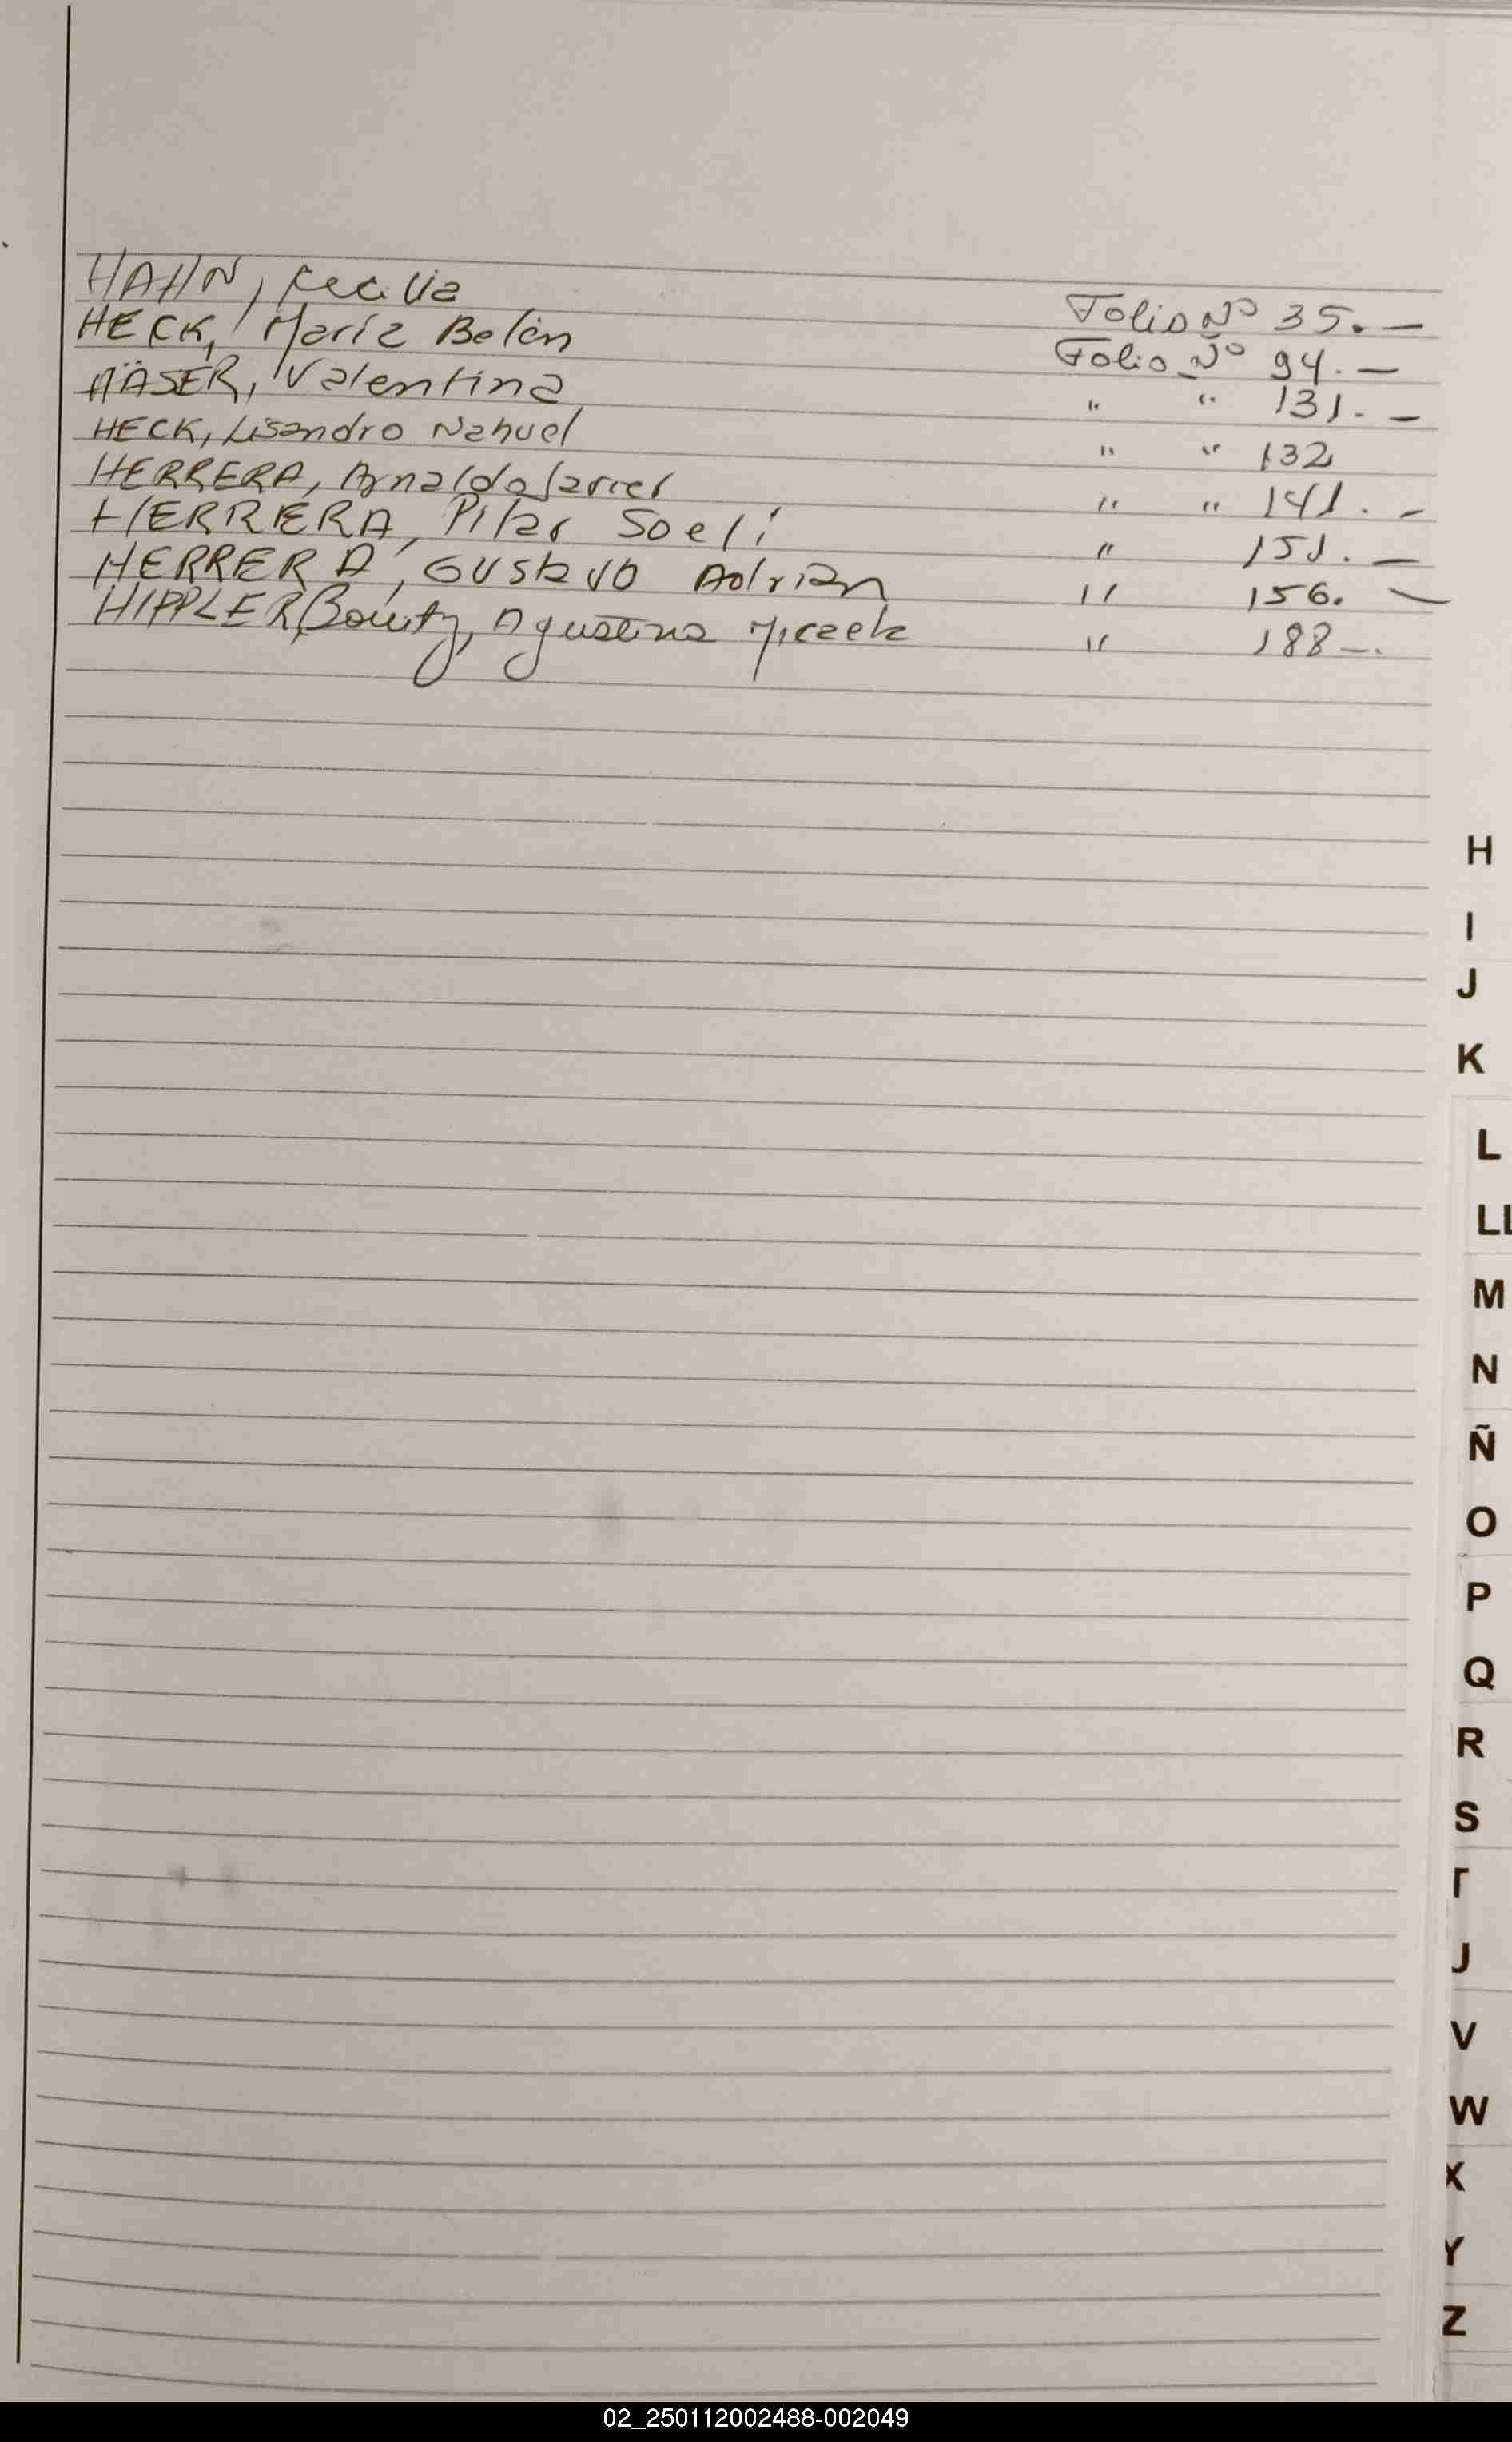 HAHN, Cecilia Folio Nº 35.—
HECK, María Belén Folio Nº 94.—
HÄSER, Valentina " " 131.—
HECK, Lisandro Nahuel " " 132
HERRERA, Arnaldo Javier " " 141.—
HERRERA, Pilar Soelí " 151.—
HERRERA, Gustavo Adrian " 156.—
HIPPLER, Agustina " 188—.
H
I
J
K
L
LL
M
N
Ñ
O
P
Q
R
S
T
U
V
W
X
Y
Z
02_250112002488-002049